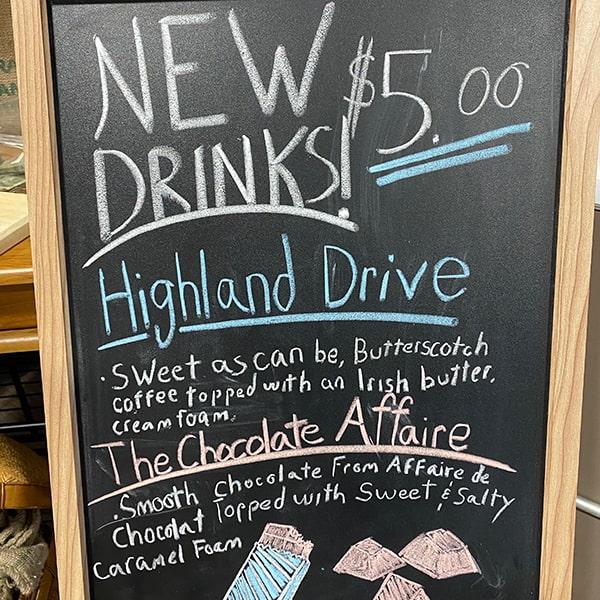 NEW $5.00
DRINKS!
Highland Drive
· Sweet as can be, Butterscotch
coffee topped with an Irish butter.
cream foam.
The Chocolate Affaire
. Smooth Chocolate From Affaire de
Chocolat Topped with Sweet & Salty
Caramel Foam